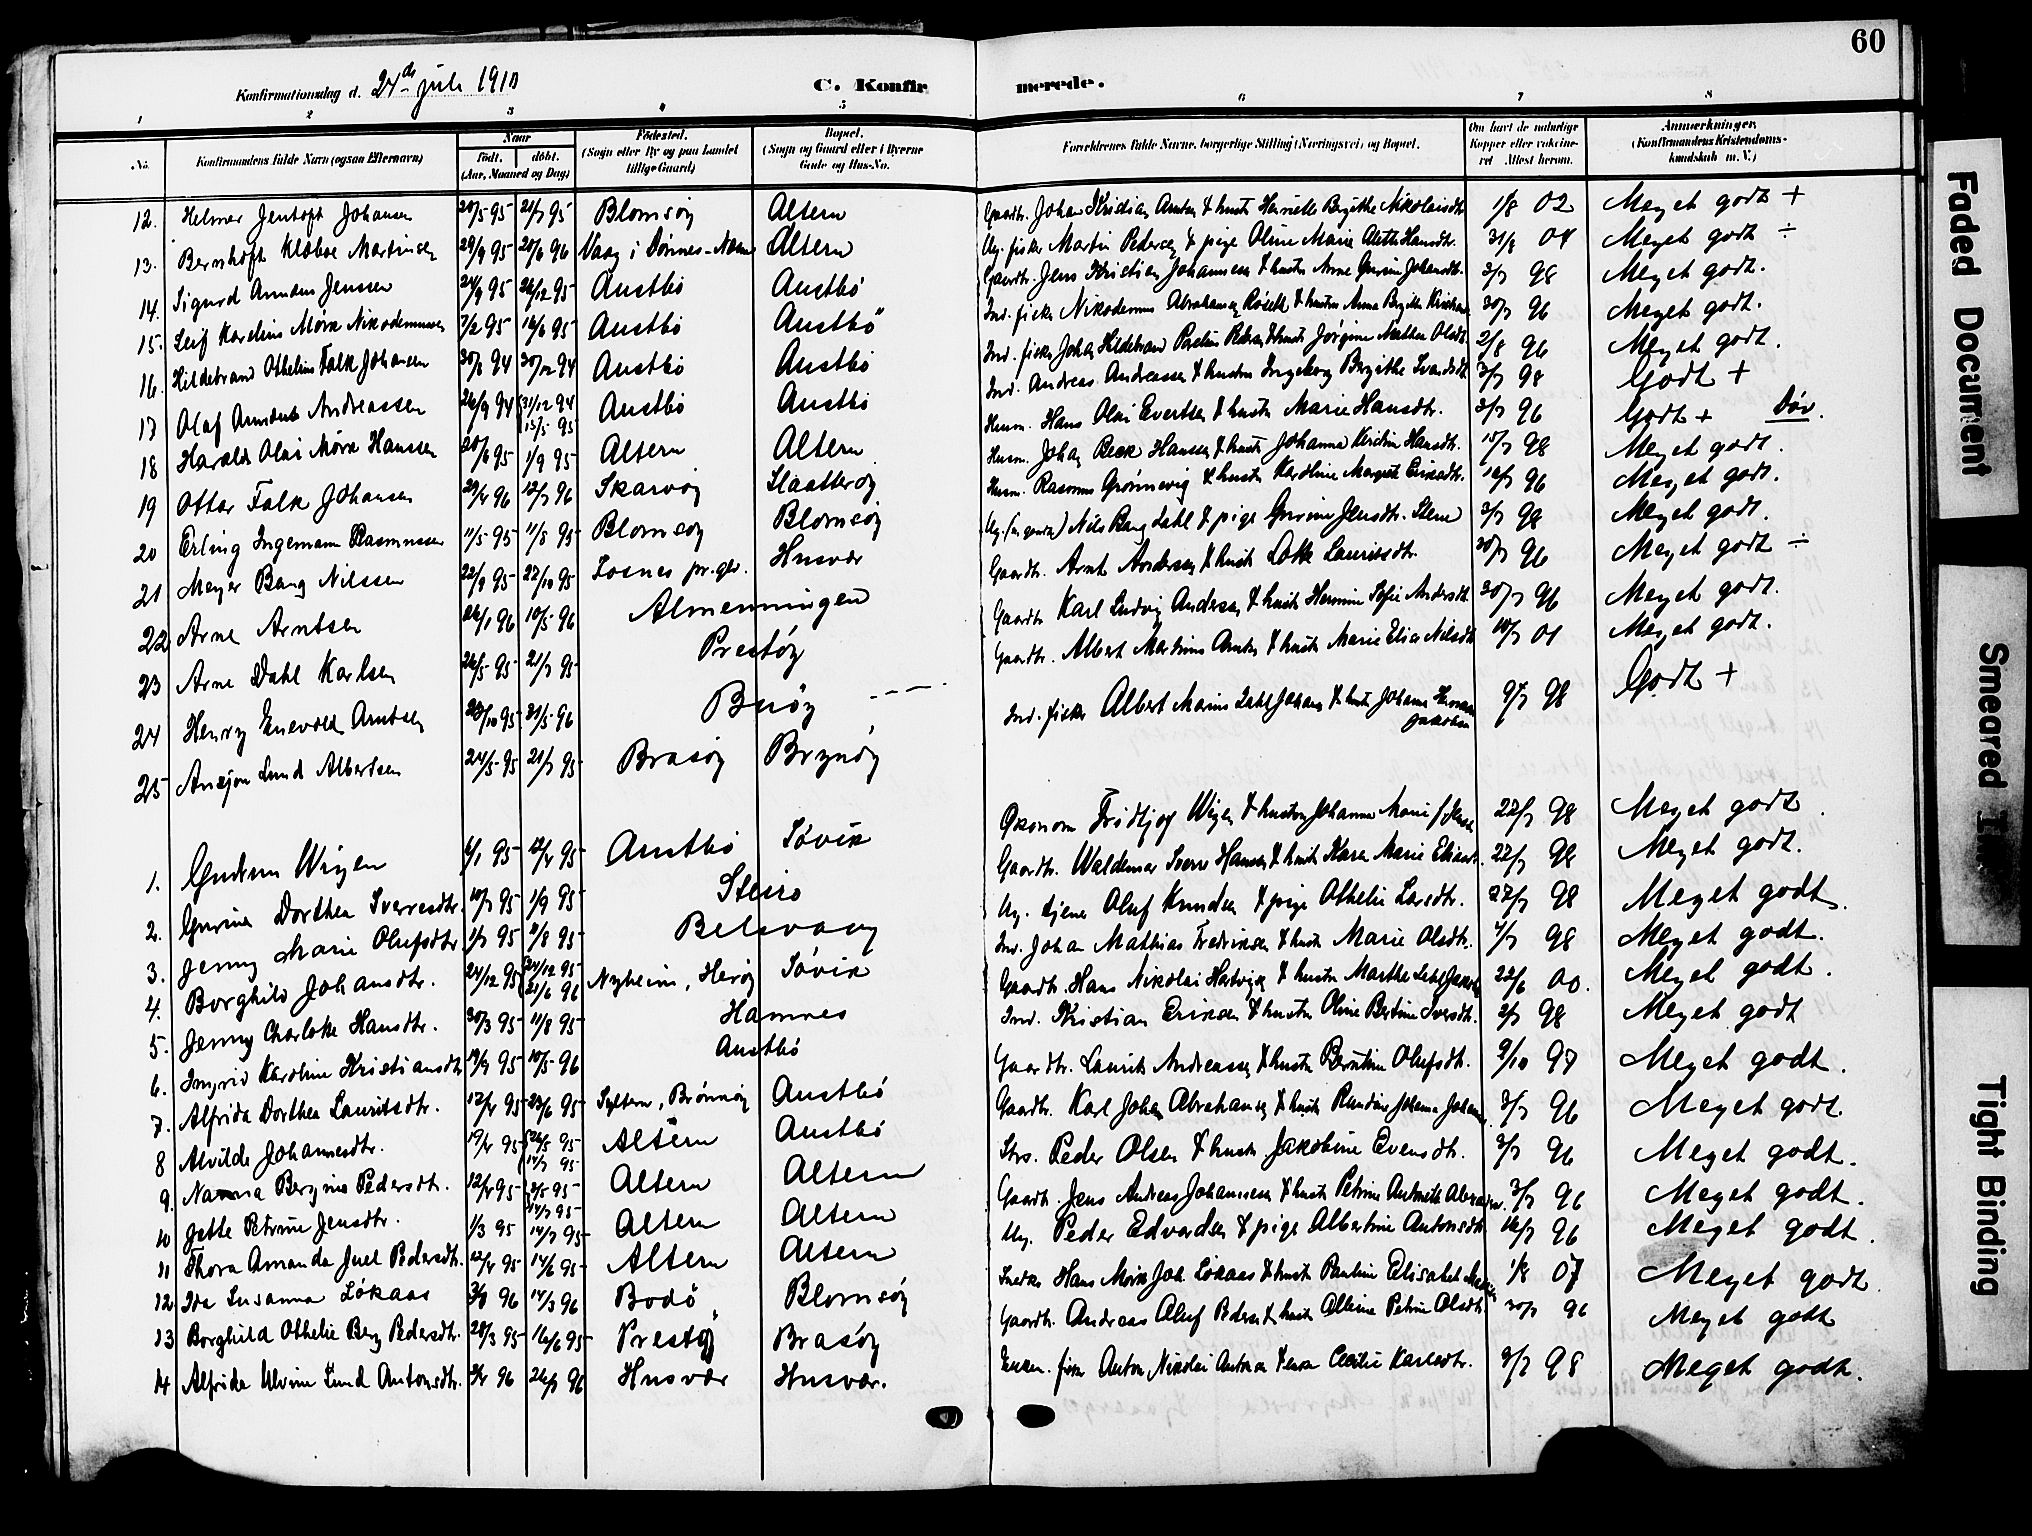 60
Konfirmationsdag d. 24de juli 1910 C. Konfirmerede.
1 2 3 4 5 6 7 8
No. Konfirmandens fulde Navn (ogsaa Efternavn) Naar født. døbt. (Aar, Maaned og Dag) Fødested. (Sogn eller By og paa Landet tillige Gaard) Bopæl. (Sogn og Gaard eller i Byerne Gade og Hus-No. Forældrenes fulde Navne, borgerlige Stilling (Næringsvei) og Bopæl. Om havt de naturlige Kopper eller vakcineret Attest herom. Anmærkninger. (Konfirmandens Kristendomskundskab m. V.)
12. Helmer Jentoft Johansen 20/5 95 21/7 95 Blomsøy Altern Gaardbr. Johan Kristian Arntsen & hustr. Henriette Bergithe Nikolaisdtr. 1/8 02 Meget godt +
13. Bernhoft Klæboe Martinsen 29/9 95 28/6 96 Vaag i Dønnes-Næsne Altern Ug. fisker Martin Pedersen & pige Oline Marie Aleth Hansdtr. 31/8 04 Meget godt ÷
14. Sigurd Armann Jensen 24/9 95 26/12 95 Austbø Austbø Gaardbr. Jens Kristian Johannesen & hustru Anne Gurine Johansdtr. 3/7 98 Meget godt.
15. Leif Karelius Mørk Nikodemussen 7/2 95 16/6 95 Austbø Austbø Ind. fisker Nikodemus Abrahamsen & hustru Anna Bergitte 30/7 96 Meget godt.
16. Hildebrand Othelius Falk Johansen 30/8 94 30/12 94 Austbø Austbø Ind. fisker Johan Hildebrand Pedersen & hustr. Jørgine Olsdtr. 2/8 96 Meget godt.
17 Olaf Andreassen 26/9 94 31/12 94 13/5 95 Austbø Austbø Ind. Andreas Andreassen & hustru Ingeborg Bergithe 3/7 98 Godt +
18 Harald Olai Mørk Hanssen 20/6 95 1/9 95 Altern Altern Husm. Hans Olai Evertsen & hustr. Marie Hansdtr. 3/7 96 Godt + Døv.
19 Ottar Falk Johansen 29/4 96 12/7 96 Skarvøy Slaatterøy Husm. Johan Beck Hansen & hustr. Johanna Kirstin Hansdtr. 15/7 98 Meget godt.
20 Erling Ingemann Rasmussen 11/5 95 11/8 95 Blomsøy Blomsøy Husm. Rasmus Grønnevig & hustr. Karoline Margrete Eriksdtr. 16/7 96 Meget godt.
21 Meyer Bang Nilssen 22/9 95 27/10 95 Fosnes pr.gj. Husvær Ug. Nils Bang Dahl & pige Gurine Jensdtr. Stene 3/7 98 Meget godt.
22 Arne Arntsen 26/1 96 10/5 96 Almenningen Gaardbr. Arnt Andersen & hustr. Lotte Lauritsdtr. 30/7 96 Meget godt ÷
23 Arne Dahl Karlsen 26/5 95 21/7 95 Prestøy Gaardbr. Karl Ludvig Andersen & hustr. Hermine Sofie Andersdtr. 30/7 96 Meget godt.
24 Henry Enevold Arntsen 23/10 95 31/5 96 Buøy Gaardbr. Albert Martinus Arntsen & hustr. Marie Elise Nilsdtr. 10/7 01 Meget godt.
25 Ansjon Lund Albertsen 24/5 95 21/7 95 Brasøy Brynøy Ind. fisker Albert Marius Johansen & hustr. Johanna Jakobsen 9/7 98 Godt +
1. Gudrun Wigen 6/1 95 12/4 95 Austbø Søvik Økonom Fridtjof Wigen & hustru Johanna Marie 22/7 98 Meget godt.
2. Gurine Dorthea Sverresdtr. 10/7 95 1/9 95 Steiro Gaardbr. Waldemar Sverre Hansen & hustr. Karen Marie Eliasdtr. 22/7 98 Meget godt.
3. Jenny Marie Olufsdtr. 1/7 95 11/8 95 Belsvaag Ug. tjener Oluf Knudsen & pige Othelie Larsdtr. 27/7 98 Meget godt.
4. Borghild Johansdtr. 24/12 95 24/12 95 21/6 96 Nyheim, Herøy Søvik Ind. Johan Mathias Fredriksen & hustr. Marie Olsdtr. 4/7 98 Meget godt.
5. Jenny Charlotte Hansdtr. 30/3 95 11/8 95 Hamnes Gaardbr. Hans Nikolai Hartvigsen & hustru Marthe 22/6 00. Meget godt.
6. Ingrid Karoline Kristiansdtr. 19/9 95 10/5 96 Austbø Ind. Kristian Eriksen & hustru Oline Bertine Iversdtr. 2/7 98 Meget godt
7. Alfrida Dorthea Lauritsdtr. 12/4 95 23/6 95 Sylteren, Brønnøy Austbø Gaardbr. Laurits Andreassen & hustru Berntine Olufsdtr. 9/10 97 Meget godt.
8 Alvilde Johannesdtr. 19/4 95 26/5 95 14/7 95 Altern Austbø Gaardbr. Karl Johan Abrahamsen & hustr. Johanna 3/7 96 Meget godt.
9. Nanna Bergine Pedersdtr. 12/4 95 3/5 95 14/7 95 Altern Altern Strs. Peder Olsen & hustr. Jakobine Evensdtr. 3/7 96 Meget godt.
10 Jette Petrine Jensdtr. 1/3 95 14/7 95 Altern Altern Gaardbr. Jens Andreas Johannesen & hustr. Petrine 3/7 96 Meget godt.
11 Thora Amanda Juel Pedersdtr. 12/4 95 14/6 95 Altern Altern Ug. Peder Edvardsen & pige Albertine Antonsdtr. 16/7 96 Meget godt.
12 Ida Susanna Løkaas 3/1 96 14/3 96 Bodø Blomsøy Hans Mørk Joh. Løkaas & hustr. Pauline Elisabet 1/8 07 Meget godt.
13 Borghild Othelie Berg Pedersdtr. 28/3 95 16/6 95 Prestøy Brasøy Gaardbr. Andreas Aluf Pedersen & hustr. Petrine Olsdtr. 30/7 96 Meget godt
14 Alfride Alvine Lund Antonsdtr. 3/4 96 26/7 96 Husvær Husvær. fisker Anton Nikolai Antonsen & Cecilie Karlsdtr. 3/7 98 Meget godt.
Faded Document
Smeared Ink
Tight Binding